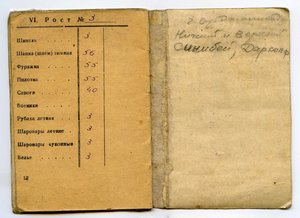 VI. Рост № 3
Шинель 3
Шапка (шлем) зимняя 56
Фуражка 55
Пилотка 55
Сапоги 40
Ботинки
Рубаха летняя 3
Шаровары летние 3
Шаровары суконные 3
Белье 3
12
Нижний и Верхний